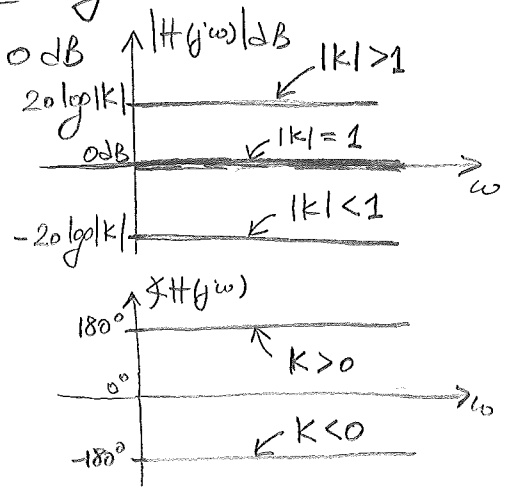 0 dB
|H(jω)|dB
|K|>1
20log|K|
0dB
|K|=1
ω
|K|<1
-20log|K|
∡H(jω)
180°
K>0
0°
ω
K<0
-180°